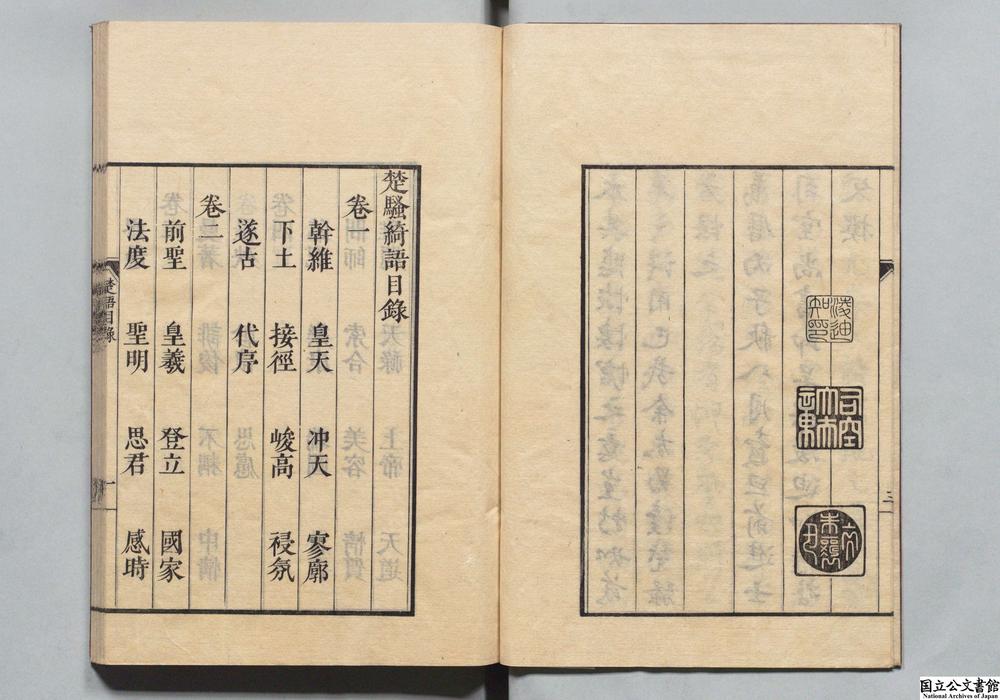 凌迪知印
三
楚騷綺語目錄
卷一
幹維 皇天 冲天 寥廓
下土 接徑 峻高 祲氛
遂古 代序
卷二
前聖 皇羲 登立 國家
法度 聖明 思君 感時
楚語目錄 一
国立公文書館
National Archives of Japan